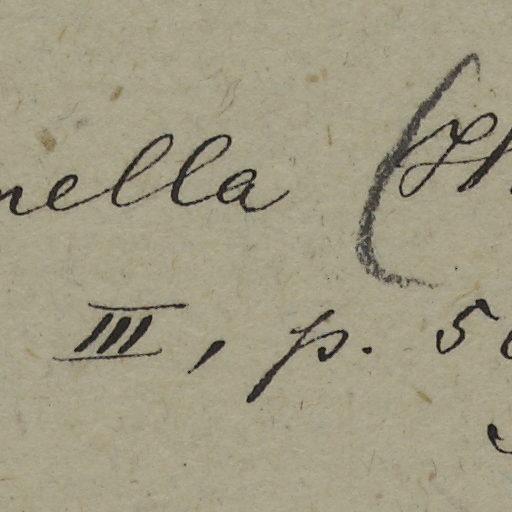 nella (
III, p. 5